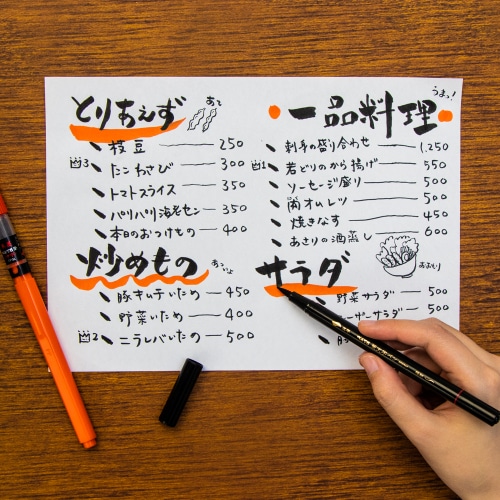 とりあえず
あて
枝豆 250
3 たこわさび 300
トマトスライス 350
パリパリ海老セン 350
本日のおつけもの 400
炒めもの
豚キムチいため 450
野菜いため 400
2 ニラレバいため 500
一品料理
うまっ!
刺身の盛り合わせ 1,250
1 若どりのから揚げ 550
ソーセージ盛り 500
肉オムレツ 500
焼きなす 450
あさりの酒蒸し 600
サラダ
野菜サラダ 500
ーザーサラダ 500